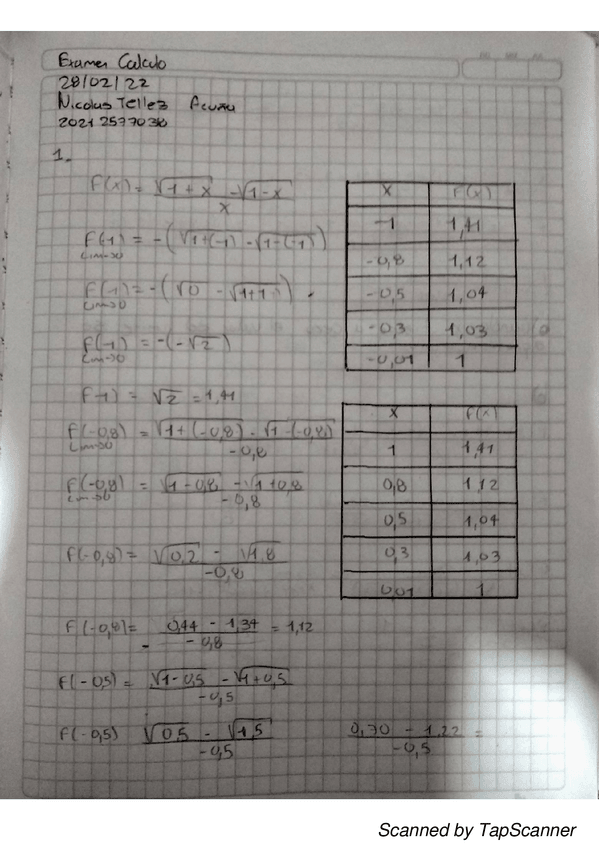 Examen Calculo
28/02/22
Nicolas Tellez Acuña
20212577036
1.
F(x) = √1+x - √1-x / x
F(-1) = -(√1+(-1) - √1-(-1))
Lim→0
F(-1) = -(√0 - √1+1)
Lim→0
F(-1) = -(-√2)
Lim→0
F-1) = √2 = 1,41
F(-0,8) = √1+(-0,8) - √1-(-0,8) / -0,8
Lim→0
F(-0,8) = √1-0,8 - √1+0,8 / -0,8
Lim→0
F(-0,8) = √0,2 - √1,8 / -0,8
F(-0,8) = 0,44 - 1,34 / -0,8 = 1,12
F(-0,5) = √1-0,5 - √1+0,5 / -0,5
F(-0,5) √0,5 - √1,5 / -0,5
0,70 - 1,22 / -0,5 =
x F(x)
-1 1,41
-0,8 1,12
-0,5 1,04
-0,3 1,03
-0,01 1
x F(x)
1 1,41
0,8 1,12
0,5 1,04
0,3 1,03
0,01 1
Scanned by TapScanner